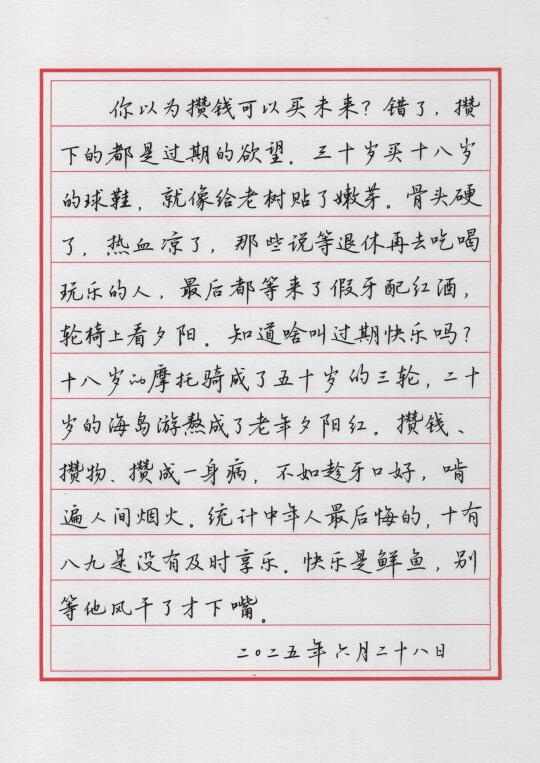 你以为攒钱可以买未来？错了，攒
下的都是过期的欲望．三十岁买十八岁
的球鞋，就像给老树贴了嫩芽．骨头硬
了，热血凉了，那些说等退休再去吃喝
玩乐的人，最后都等来了假牙配红酒，
轮椅上看夕阳．知道啥叫过期快乐吗？
十八岁的摩托骑成了五十岁的三轮，二十
岁的海岛游熬成了老年夕阳红．攒钱、
攒物、攒成一身病，不如趁牙口好，啃
遍人间烟火．统计中年人最后悔的，十有
八九是没有及时享乐．快乐是鲜鱼，别
等他风干了才下嘴。
二〇二五年六月二十八日